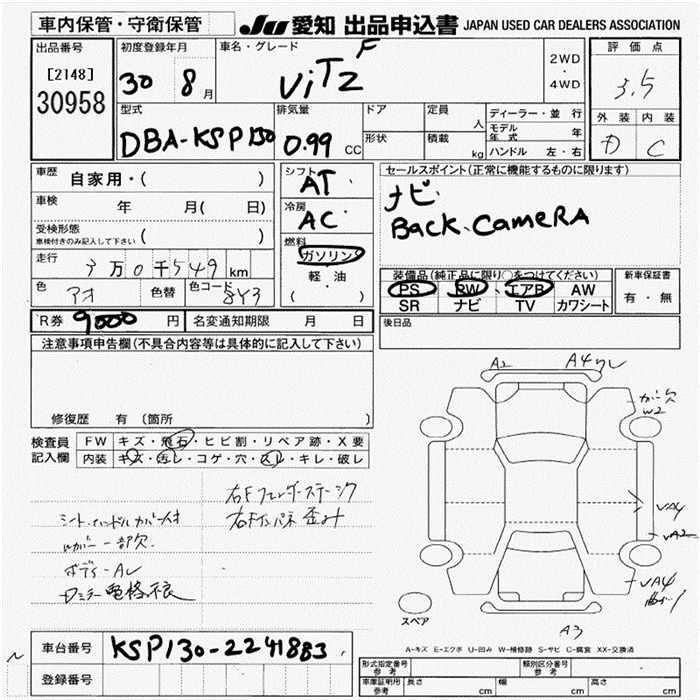 車内保管・守衛保管
JU 愛知 出品申込書 JAPAN USED CAR DEALERS ASSOCIATION
出品番号
[2148]
30958
初度登録年月
30 8 月
車名・グレード
ViTZ F
2WD
・
4WD
評価点
3.5
外装 内装
D C
型式
DBA-KSP130
排気量
0.99 CC
ドア
形状
定員 人
積載 kg
ディーラー・並 行
モデル年式 年
ハンドル 左・右
車歴 自家用・( )
車検 年 月( 日)
受検形態
車検付きのみ記入して下さい ( )
走行 3万0千549km
色 アオ 色替 色コード 8Y3
シフト
AT
冷房
AC
燃料
ガソリン
軽・油
( )
セールスポイント(正常に機能するものに限ります)
ナビ
BACK CAMERA
装備品(純正品に限り○をつけてください)
PS PW エアB AW
SR ナビ TV カワシート
新車保証書
有・無
R券 9000 円 名変通知期限 月 日
後日品
注意事項申告欄(不具合内容等は具体的に記入して下さい)
修復歴 有 (箇所
検査員
記入欄
FW キズ・飛石・ヒビ割・リペア跡・X要
内装 キズ・汚レ・コゲ・穴・スレ・キレ・破レ
シート、ハンドルカバー
カバー一部欠
ボディーAレ
右Fフェンダーステージク
右Fインパネ歪み
A2 A4
カバー欠
W2
VA4
VA2
VA4
A3
スペア
A-キズ E-エクボ U-凹み W-補修跡 S-サビ C-腐食 XX-交換済
車台番号 KSP130-2241883
登録番号
形式指定番号
参考
類別区分番号
参考
車庫証明用
参考
長さ cm 幅 cm 高さ cm